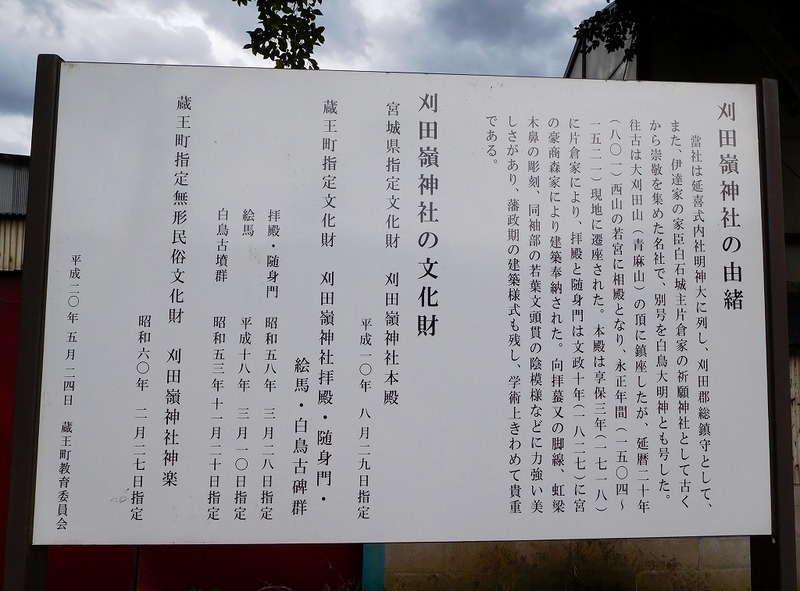 刈田嶺神社の由緒
当社は延喜式内社明神大に列し、刈田郡総鎮守として、
また、伊達家の家臣白石城主片倉家の祈願神社として古く
から崇敬を集めた名社で、別号を白鳥大明神とも号した。
往古は大刈田山(青麻山)の頂に鎮座したが、延暦二十年
(八〇一)西山の若宮に相殿となり、永正年間(一五〇四~
一五二一)現地に遷座された。本殿は享保三年(一七一八)
に片倉家により、拝殿と随身門は文政十年(一八二七)に宮
の豪商森家により建築奉納された。向拝蟇又の脚線、虹梁
木鼻の彫刻、同袖部の若葉文頭貫の陰模様などに力強い美
しさがあり、藩政期の建築様式も残し、学術上きわめて貴重
である。
刈田嶺神社の文化財
宮城県指定文化財 刈田嶺神社本殿
平成一〇年 八月二九日指定
蔵王町指定文化財 刈田嶺神社拝殿・随身門・
絵馬・白鳥古碑群
拝殿・随身門 昭和五八年 三月二八日指定
絵馬 平成十八年 三月一〇日指定
白鳥古墳群 昭和五三年十一月二十日指定
蔵王町指定無形民俗文化財 刈田嶺神社神楽
昭和六〇年 二月二七日指定
平成二〇年五月二四日 蔵王町教育委員会